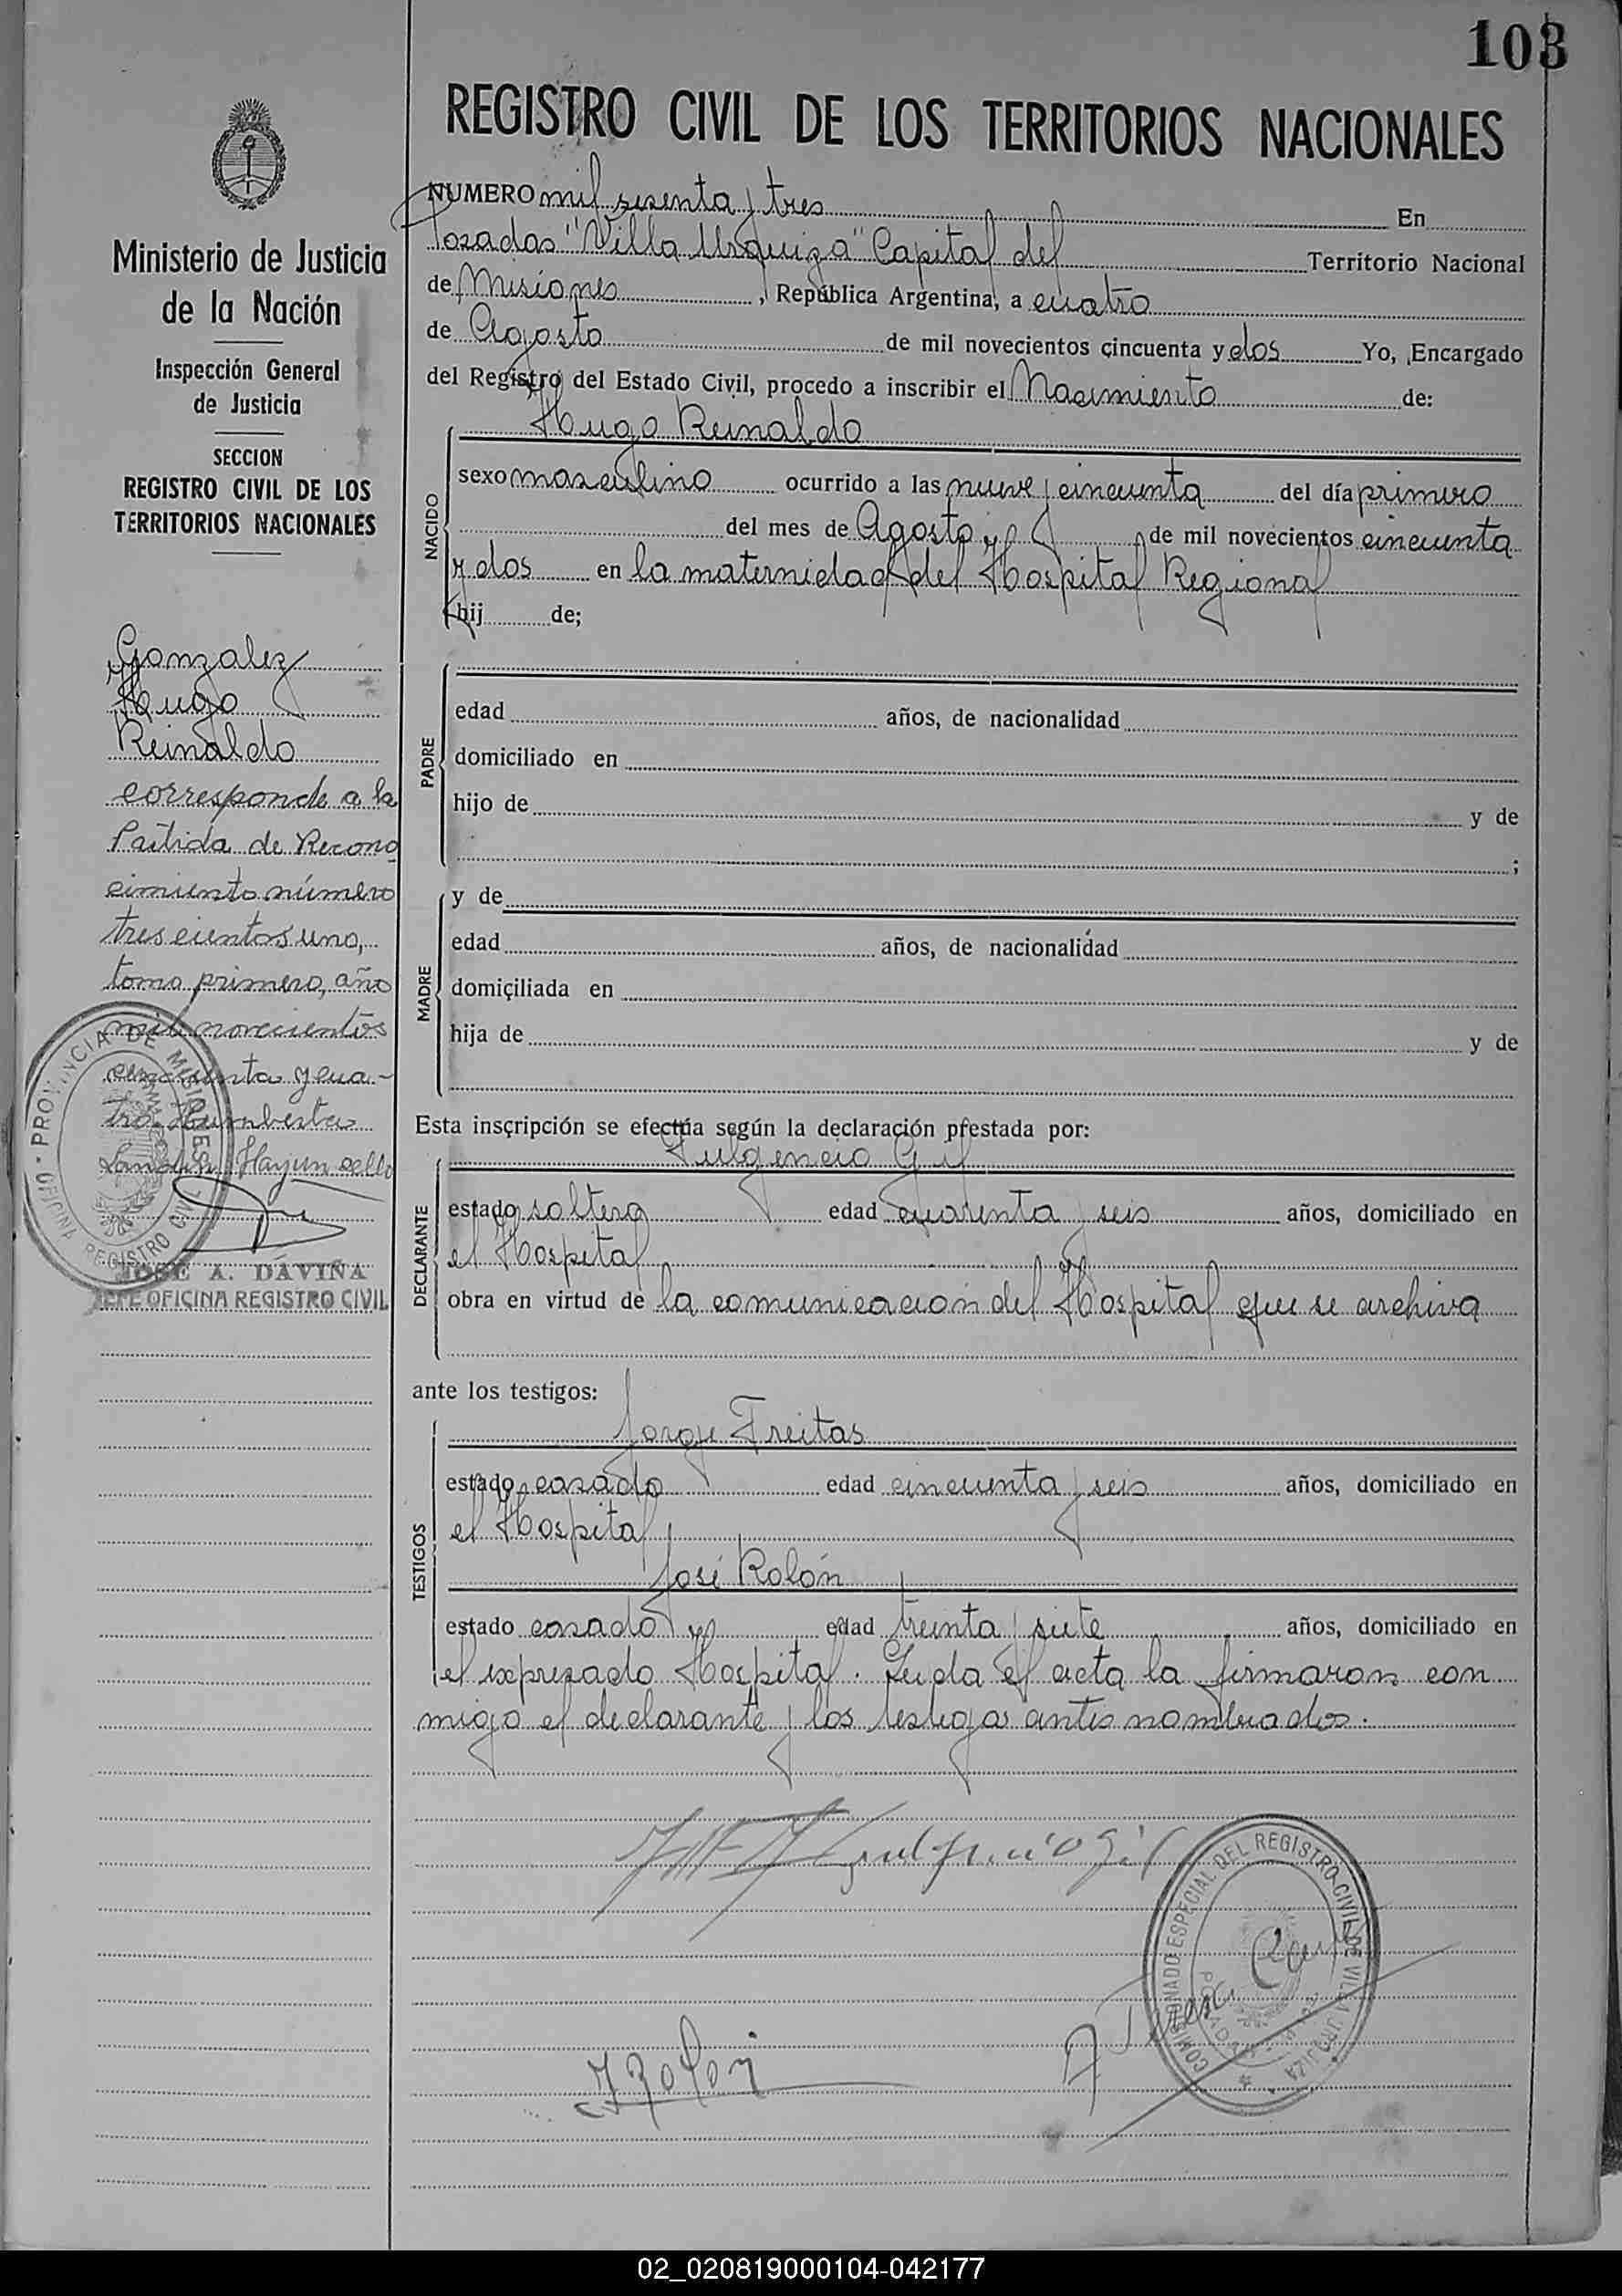 103
REGISTRO CIVIL DE LOS TERRITORIOS NACIONALES
Ministerio de Justicia
de la Nación
Inspección General
de Justicia
SECCION
REGISTRO CIVIL DE LOS
TERRITORIOS NACIONALES
Gonzalez
Hugo
Reinaldo
corresponde a la
Partida de Recono
cimiento número
trescientos uno,
tomo primero, año
mil novecientos
cincuenta y cua-
tro. Humberto
PROVINCIA DE MISIONES
OFICINA REGISTRO CIVIL
JOSE A. DAVIÑA
JEFE OFICINA REGISTRO CIVIL
NUMERO mil sesenta y tres En
Posadas "Villa Urquiza" Capital del Territorio Nacional
de Misiones, República Argentina, a cuatro
de Agosto de mil novecientos cincuenta y dos Yo, Encargado
del Registro del Estado Civil, procedo a inscribir el Nacimiento de:
Hugo Reinaldo
NACIDO
sexo masculino ocurrido a las nueve y cincuenta del día primero
del mes de Agosto de mil novecientos cincuenta
y dos en la maternidad del Hospital Regional
hij de;
PADRE
edad años, de nacionalidad
domiciliado en
hijo de y de
;
MADRE
y de
edad años, de nacionalidad
domiciliada en
hija de y de
Esta inscripción se efectúa según la declaración prestada por:
Fulgencio Gil
DECLARANTE
estado soltero edad cuarenta y seis años, domiciliado en
el Hospital
obra en virtud de la comunicación del Hospital que se archiva
ante los testigos:
TESTIGOS
Jorge Freitas
estado casado edad cincuenta y seis años, domiciliado en
el Hospital
José Rolón
estado casado y edad treinta y siete años, domiciliado en
el expresado Hospital. Leida el acta la firmaron con
migo el declarante y los testigos antes nombrados.
Fulgencio Gil
COMISIONADO ESPECIAL DEL REGISTRO CIVIL DE VILLA URQUIZA
J Rolon
02_020819000104-042177